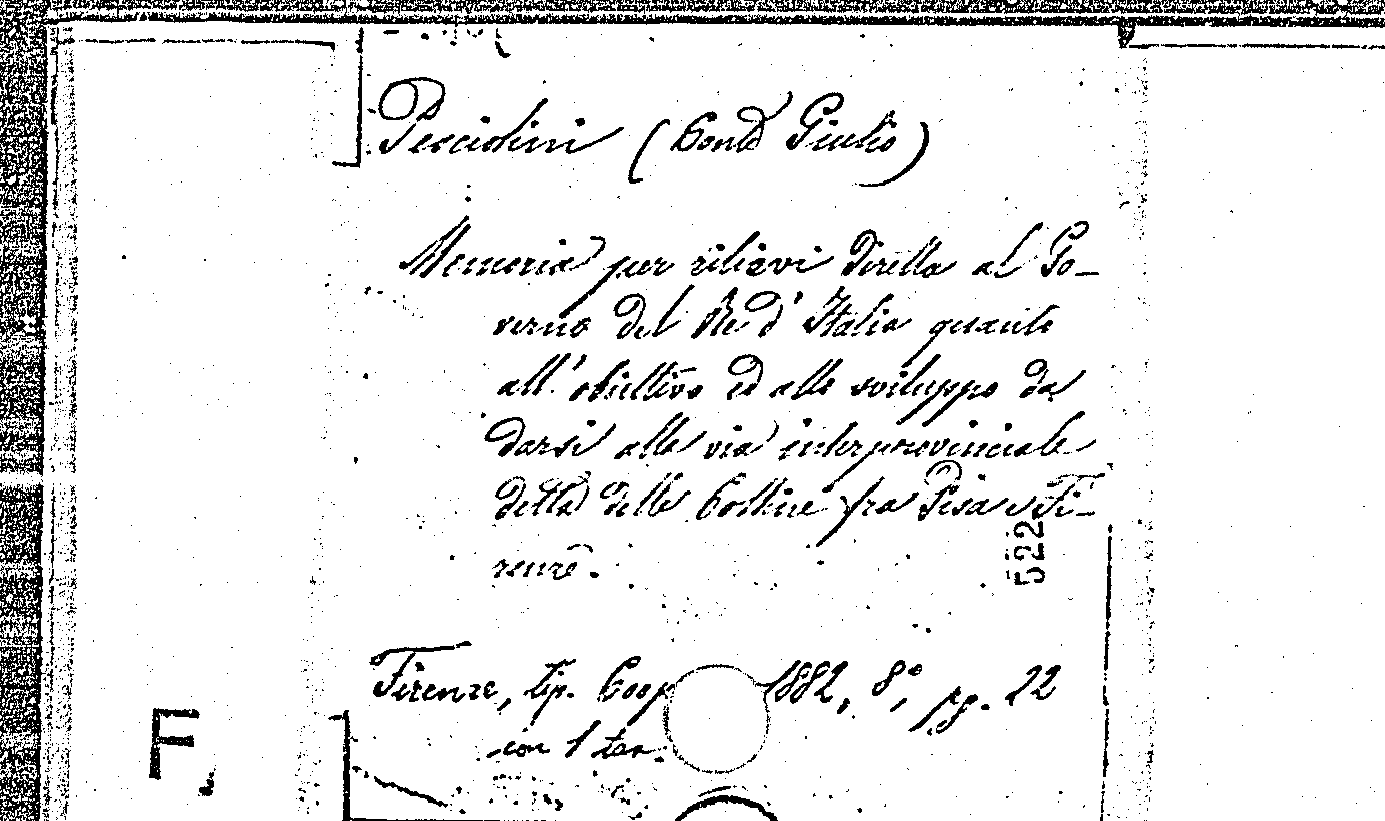 Pecciolini (Conte Giulio)
Memoria per rilievi diretta al Go-
verno del Re d'Italia quanto
all'obiettivo ed allo sviluppo da
darsi alla via interprovinciale
detta delle Colline fra Pisa e Fi-
renze.
522
Firenze, tip. Coop 1882, 8°, pg. 22
con 1 tav.
F.